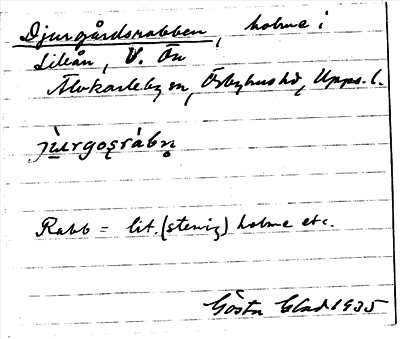 Djurgårdsrabben, holme i
Lillån, V. Ön
Älvkarleby sn, Örbyhus hd, Upps. l.
jùrgosrábn̥
Rabb = lit. (stenig) holme etc.
Gösta Clad 1935